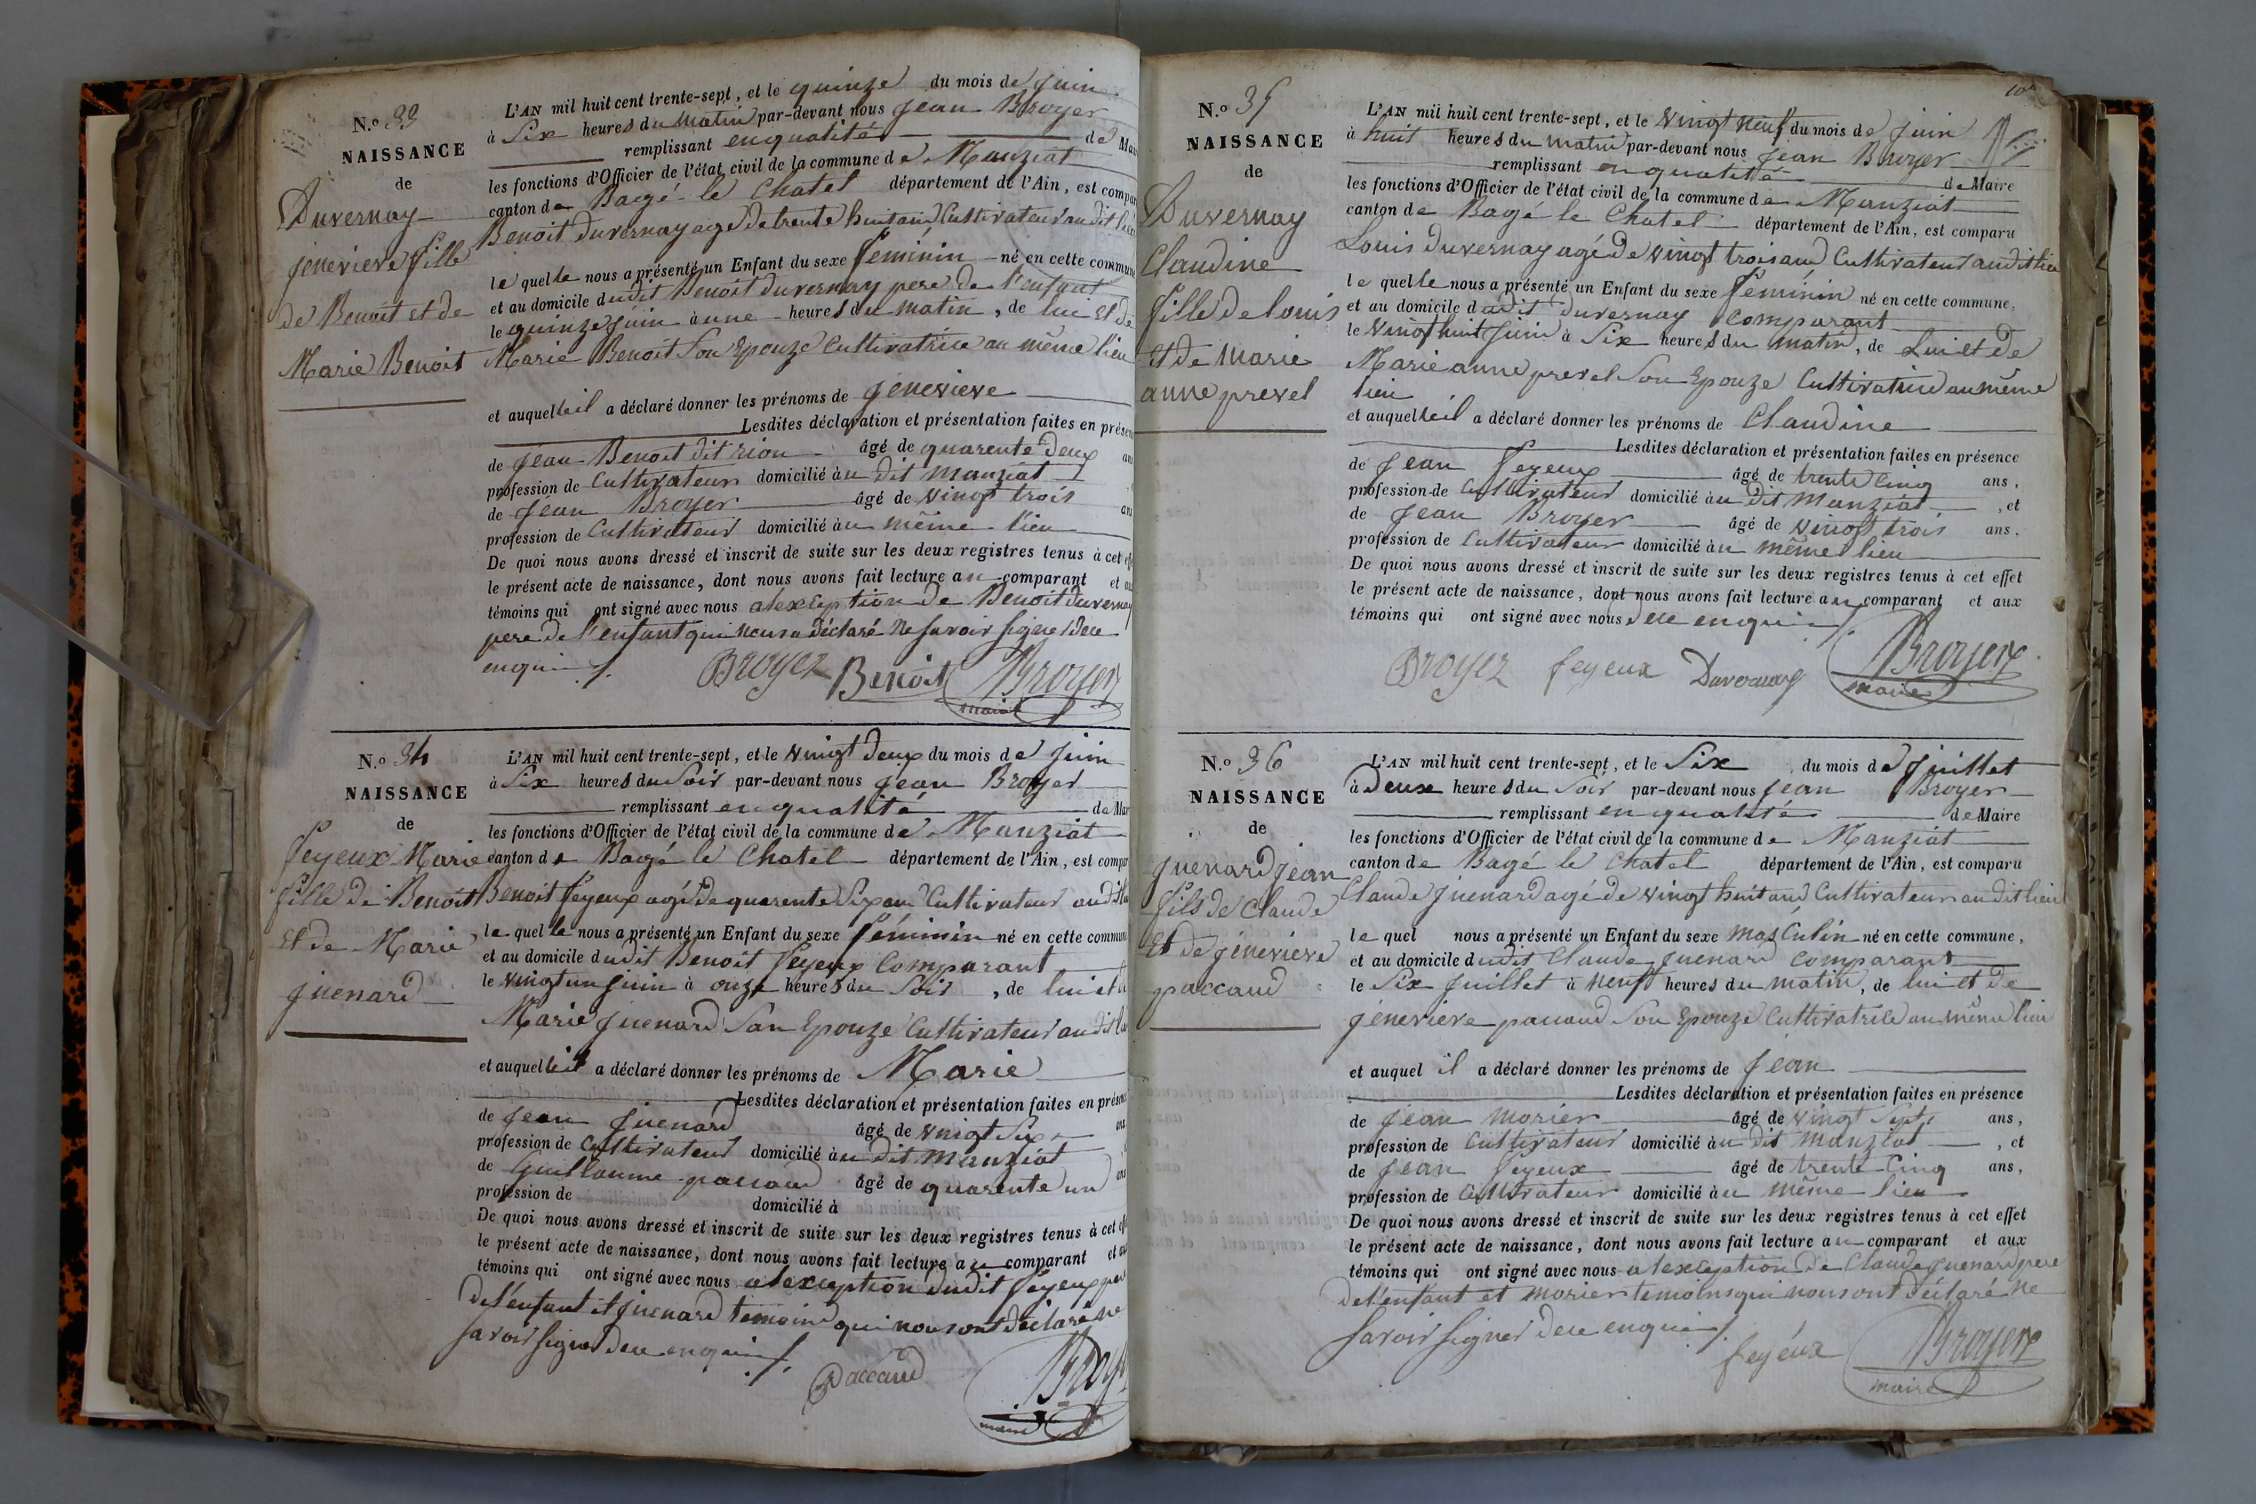 N.o 33
NAISSANCE
de
Duvernay
jenevieve fille
de Benoit et de
Marie Benoit
L'AN mil huit cent trente-sept, et le quinze du mois de juin
à Six heures du matin par-devant nous Jean Broyer
remplissant en qualité de Mai
les fonctions d'Officier de l'état civil de la commune de Manziat
canton de Bagé-le Chatel département de l'Ain, est compar
Benoit duvernay agé de trente huit ans Cultivateur au dit lieu
lequelle nous a présenté un Enfant du sexe féminin né en cette commune
et au domicile dudit Benoit duvernay pere de l'enfant
le quinze juin à une heures du matin, de lui et de
Marie Benoit Son Epouze Cultivatrice au même lieu
et auquelleil a déclaré donner les prénoms de jenevieve
Lesdites déclaration et présentation faites en présen
de Jean Benoit dit rion âgé de quarente deux ans
profession de Cultivateur domicilié àu dit manziat
de Jean Broyer âgé de vingt trois ans
profession de Cultivateur domicilié àu même lieu
De quoi nous avons dressé et inscrit de suite sur les deux registres tenus à cet effe
le présent acte de naissance, dont nous avons fait lecture au comparant et au
témoins qui ont signé avec nous alexception de Benoit duvernay
pere de l'enfant qui nous a déclaré ne Savoir signer dece
enquis
Broyer Benoit Broyer
maire
N.o 34
NAISSANCE
de
feyeux Marie
fille de Benoit
et de Marie
juenard
L'AN mil huit cent trente-sept, et le vingt deux du mois de juin
à Six heures du Soir par-devant nous Jean Broyer
remplissant en qualité de Mai
les fonctions d'Officier de l'état civil de la commune de Manziat
canton de Bagé le Chatel département de l'Ain, est compar
Benoit feyeux agé de quarente Six ans Cultivateur au dit lieu
lequelle nous a présenté un Enfant du sexe féminin né en cette commune
et au domicile dudit Benoit feyeux Comparant
le vingt un juin à onze heures du Soir, de lui et de
Marie juenard Son Epouze Cultivateur au dit lieu
et auquelleil a déclaré donner les prénoms de Marie
Lesdites déclaration et présentation faites en présenc
de Jean juenard âgé de vingt Six ans
profession de Cultivateur domicilié àu dit manziat
de Guillaume paccaud âgé de quarente un ans
profession de domicilié à
De quoi nous avons dressé et inscrit de suite sur les deux registres tenus à cet effe
le présent acte de naissance, dont nous avons fait lecture au comparant et au
témoins qui ont signé avec nous alexception dudit feyeux pere
de l'enfant et juenard temoin qui nous ont déclaré ne
Savoir signer dece enquis
Paccaud Broyer
maire
10
N.o 35
NAISSANCE
de
Duvernay
Claudine
fille de louis
et de Marie
anne prevel
L'AN mil huit cent trente-sept, et le vingt neuf du mois de juin
à huit heures du matin par-devant nous Jean Broyer
remplissant en qualité de Maire
les fonctions d'Officier de l'état civil de la commune de Manziat
canton de Bagé le Chatel département de l'Ain, est comparu
Louis duvernay agé de vingt trois ans Cultivateur au dit lieu
lequelle nous a présenté un Enfant du sexe féminin né en cette commune,
et au domicile dudit duvernay Comparant
le vingt huit juin à Six heures du matin, de Lui et de
Marie anne prevel Son Epouze Cultivatrice au même
lieu
et auquelleil a déclaré donner les prénoms de Claudine
Lesdites déclaration et présentation faites en présence
de Jean feyeux âgé de trente cinq ans,
profession de Cultivateur domicilié àu dit manziat, et
de Jean Broyer âgé de vingt trois ans.
profession de Cultivateur domicilié àu même lieu
De quoi nous avons dressé et inscrit de suite sur les deux registres tenus à cet effet
le présent acte de naissance, dont nous avons fait lecture au comparant et aux
témoins qui ont signé avec nous dece enquis
Broyer feyeux Duvernay Broyer
maire
N.o 36
NAISSANCE
de
juenard jean
fils de Claude
Et de jenevieve
paccaud
L'AN mil huit cent trente-sept, et le Six du mois de juillet
à Deux heures du Soir par-devant nous Jean Broyer
remplissant en qualité de Maire
les fonctions d'Officier de l'état civil de la commune de Manziat
canton de Bagé le Chatel département de l'Ain, est comparu
Claude juenard agé de vingt huit ans Cultivateur au dit lieu
lequel nous a présenté un Enfant du sexe masculin né en cette commune,
et au domicile dudit Claude juenard Comparant
le Six juillet à neuf heures du matin, de lui et de
jenevieve paccaud Son Epouze Cultivatrice au même lieu
et auquel il a déclaré donner les prénoms de jean
Lesdites déclaration et présentation faites en présence
de Jean morier âgé de vingt Sept ans,
profession de Cultivateur domicilié àu dit manziat, et
de Jean feyeux âgé de trente Cinq ans,
profession de Cultivateur domicilié àu même lieu
De quoi nous avons dressé et inscrit de suite sur les deux registres tenus à cet effet
le présent acte de naissance, dont nous avons fait lecture au comparant et aux
témoins qui ont signé avec nous alexception de Claude juenard pere
de l'enfant et morier temoins qui nous ont déclaré ne
Savoir signer dece enquis
feyeux Broyer
maire